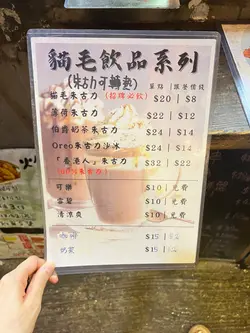 貓毛飲品系列
(朱古力可轉熱)
單點 | 跟餐價錢
貓毛朱古力 (招牌必飲) $20 | $8
薄荷朱古力 $22 | $12
伯爵奶茶朱古力 $24 | $14
Oreo朱古力沙冰 $24 | $14
「香港人」朱古力 $32 | $22
可樂 $10 | 免費
雪碧 $10 | 免費
清涼爽 $10 | 免費
咖啡 $15
奶茶 $15